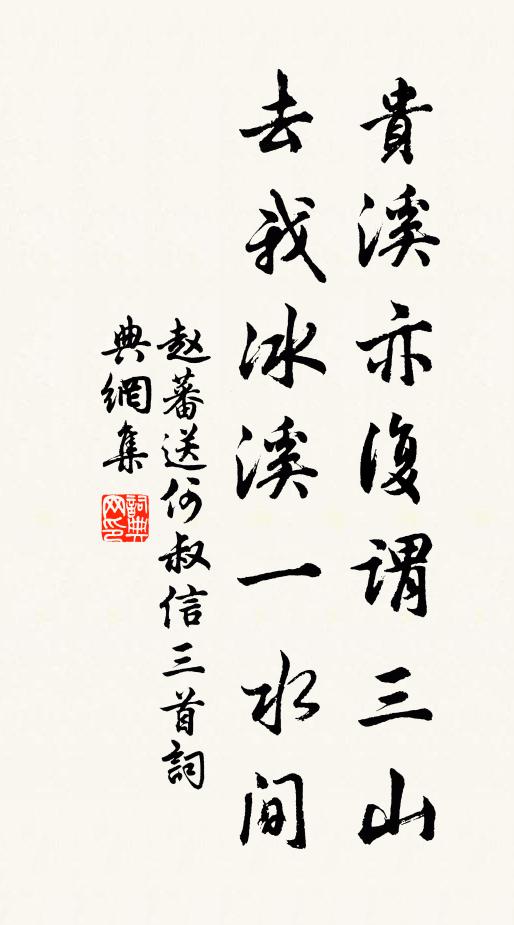 貴溪亦復謂三山
去我冰溪一水间
赵蕃送何叔信三首詞
典網集
詞典
网印